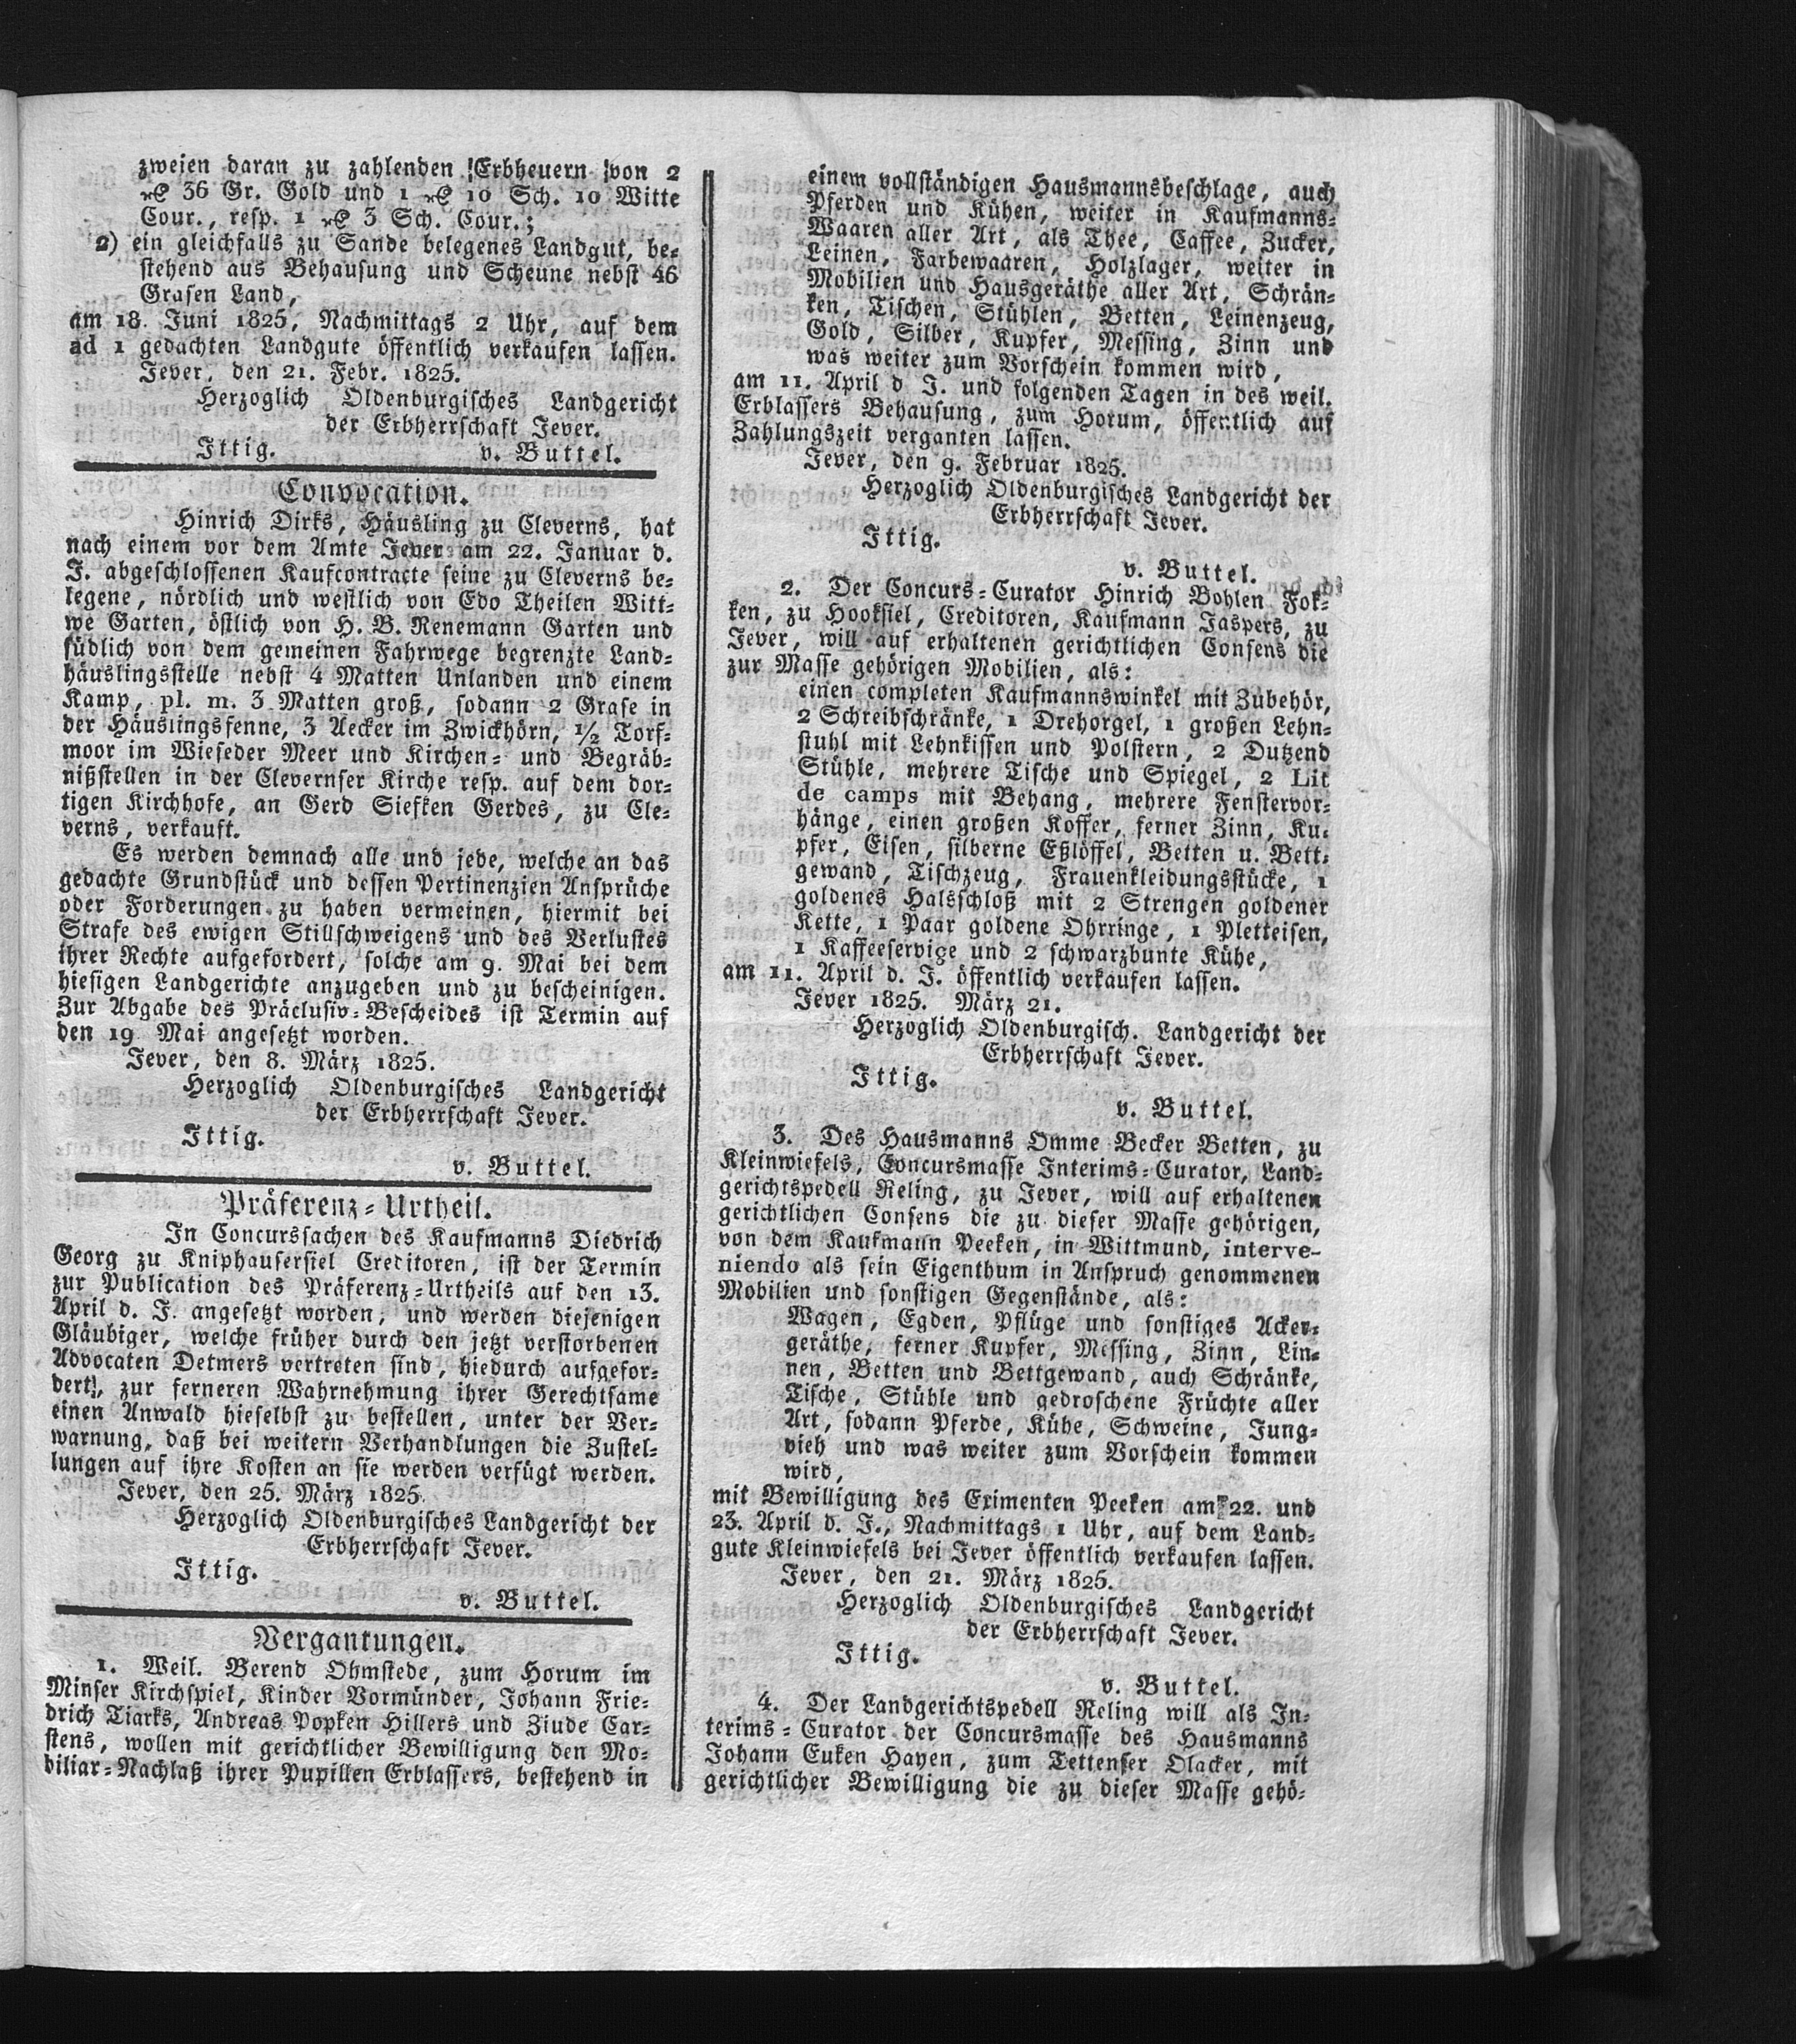 zweien daran zu zahlenden Erbheuern von 2
rℓ 36 Gr. Gold und 1 rℓ 10 Sch. 10 Witte
Cour., resp. 1 rℓ 3 Sch. Cour.;
2) ein gleichfalls zu Sande belegenes Landgut, be-
stehend aus Behausung und Scheune nebst 46
Grasen Land,
am 18. Juni 1825, Nachmittags 2 Uhr, auf dem
ad 1 gedachten Landgute öffentlich verkaufen lassen.
Jever, den 21. Febr. 1825.
Herzoglich Oldenburgisches Landgericht
der Erbherrschaft Jever.
Ittig. v. Buttel.
Convocation.
Hinrich Dirks, Häusling zu Cleverns, hat
nach einem vor dem Amte Jever am 22. Januar d.
J. abgeschlossenen Kaufcontracte seine zu Cleverns be-
legene, nördlich und westlich von Edo Theilen Witt-
we Garten, östlich von H. B. Renemann Garten und
südlich von dem gemeinen Fahrwege begrenzte Land-
häuslingsstelle nebst 4 Matten Unlanden und einem
Kamp, pl. m. 3 Matten groß, sodann 2 Grase in
der Häuslingsfenne, 3 Aecker im Zwickhörn, 1/2 Torf-
moor im Wieseder Meer und Kirchen- und Begräb-
nißstellen in der Clevernser Kirche resp. auf dem dor-
tigen Kirchhofe, an Gerd Siefken Gerdes, zu Cle-
verns, verkauft.
Es werden demnach alle und jede, welche an das
gedachte Grundstück und dessen Pertinenzien Ansprüche
oder Forderungen zu haben vermeinen, hiermit bei
Strafe des ewigen Stillschweigens und des Verlustes
ihrer Rechte aufgefordert, solche am 9. Mai bei dem
hiesigen Landgerichte anzugeben und zu bescheinigen.
Zur Abgabe des Präclusiv-Bescheides ist Termin auf
den 19 Mai angesetzt worden.
Jever, den 8. März 1825.
Herzoglich Oldenburgisches Landgericht
der Erbherrschaft Jever.
Ittig.
v. Buttel.
Präferenz-Urtheil.
In Concurssachen des Kaufmanns Diedrich
Georg zu Kniphausersiel Creditoren, ist der Termin
zur Publication des Präferenz-Urtheils auf den 13.
April d. J. angesetzt worden, und werden diejenigen
Gläubiger, welche früher durch den jetzt verstorbenen
Advocaten Detmers vertreten sind, hiedurch aufgefor-
dert, zur ferneren Wahrnehmung ihrer Gerechtsame
einen Anwald hieselbst zu bestellen, unter der Ver-
warnung, daß bei weitern Verhandlungen die Zustel-
lungen auf ihre Kosten an sie werden verfügt werden.
Jever, den 25. März 1825.
Herzoglich Oldenburgisches Landgericht der
Erbherrschaft Jever.
Ittig.
v. Buttel.
Vergantungen.
1. Weil. Berend Ohmstede, zum Horum im
Minser Kirchspiel, Kinder Vormünder, Johann Frie-
drich Tiarks, Andreas Popken Hillers und Ziude Car-
stens, wollen mit gerichtlicher Bewilligung den Mo-
biliar-Nachlaß ihrer Pupillen Erblassers, bestehend in
einem vollständigen Hausmannsbeschlage, auch
Pferden und Kühen, weiter in Kaufmanns-
Waaren aller Art, als Thee, Caffee, Zucker,
Leinen, Farbewaaren, Holzlager, weiter in
Mobilien und Hausgeräthe aller Art, Schrän-
ken, Tischen, Stühlen, Betten, Leinenzeug,
Gold, Silber, Kupfer, Messing, Zinn und
was weiter zum Vorschein kommen wird,
am 11. April d J. und folgenden Tagen in des weil.
Erblassers Behausung, zum Horum, öffentlich auf
Zahlungszeit verganten lassen.
Jever, den 9. Februar 1825.
Herzoglich Oldenburgisches Landgericht der
Erbherrschaft Jever.
Ittig.
v. Buttel.
2. Der Concurs-Curator Hinrich Bohlen Fok-
ken, zu Hooksiel, Creditoren, Kaufmann Jaspers, zu
Jever, will auf erhaltenen gerichtlichen Consens die
zur Masse gehörigen Mobilien, als:
einen completen Kaufmannswinkel mit Zubehör,
2 Schreibschränke, 1 Drehorgel, 1 großen Lehn-
stuhl mit Lehnkissen und Polstern, 2 Dutzend
Stühle, mehrere Tische und Spiegel, 2 Lit
de camps mit Behang, mehrere Fenstervor-
hänge, einen großen Koffer, ferner Zinn, Ku-
pfer, Eisen, silberne Eßlöffel, Betten u. Bett-
gewand, Tischzeug, Frauenkleidungsstücke, 1
goldenes Halsschloß mit 2 Strengen goldener
Kette, 1 Paar goldene Ohrringe, 1 Pletteisen,
1 Kaffeeservice und 2 schwarzbunte Kühe,
am 11. April d. J. öffentlich verkaufen lassen.
Jever 1825. März 21.
Herzoglich Oldenburgisch. Landgericht der
Erbherrschaft Jever.
Ittig.
v. Buttel.
3. Des Hausmanns Omme Becker Betten, zu
Kleinwiefels, Concursmasse Interims-Curator, Land-
gerichtspedell Reling, zu Jever, will auf erhaltenen
gerichtlichen Consens die zu dieser Masse gehörigen,
von dem Kaufmann Peeken, in Wittmund, interve-
niendo als sein Eigenthum in Anspruch genommenen
Mobilien und sonstigen Gegenstände, als:
Wagen, Egden, Pflüge und sonstiges Acker-
geräthe, ferner Kupfer, Messing, Zinn, Lin-
nen, Betten und Bettgewand, auch Schränke,
Tische, Stühle und gedroschene Früchte aller
Art, sodann Pferde, Kühe, Schweine, Jung-
vieh und was weiter zum Vorschein kommen
wird,
mit Bewilligung des Eximenten Peeken am 22. und
23. April d. J., Nachmittags 1 Uhr, auf dem Land-
gute Kleinwiefels bei Jever öffentlich verkaufen lassen.
Jever, den 21. März 1825.
Herzoglich Oldenburgisches Landgericht
der Erbherrschaft Jever.
Ittig.
v. Buttel.
4. Der Landgerichtspedell Reling will als In-
terims-Curator der Concursmasse des Hausmanns
Johann Euken Hayen, zum Tettenser Olacker, mit
gerichtlicher Bewilligung die zu dieser Masse gehö-